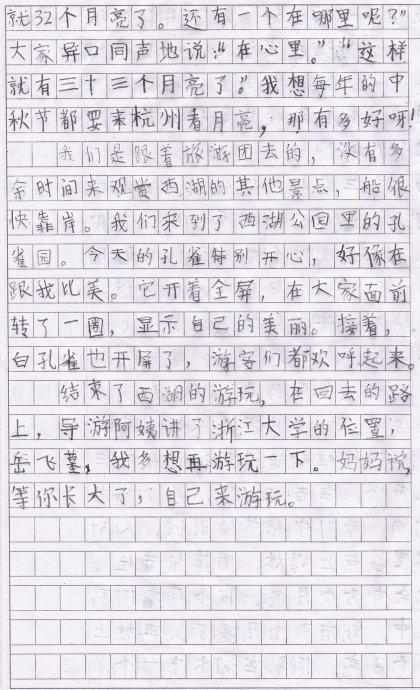 就32个月亮了。还有一个在哪里呢？”
大家异口同声地说：“在心里。”“这样
就有三十三个月亮了。”我想每年的中
秋节都要来杭州看月亮，那有多好呀！
我们是跟着旅游团去的，没有多
余时间来观赏西湖的其他景点，船很
快靠岸。我们来到了西湖公园里的孔
雀园。今天的孔雀特别开心，好像在
跟我比美。它开着全屏，在大家面前
转了一圈，显示自己的美丽。接着，
白孔雀也开屏了，游客们都欢呼起来。
结束了西湖的游玩，在回去的路
上，导游阿姨讲了浙江大学的位置，
岳飞墓，我多想再游玩一下。妈妈说，
等你长大了，自己来游玩。